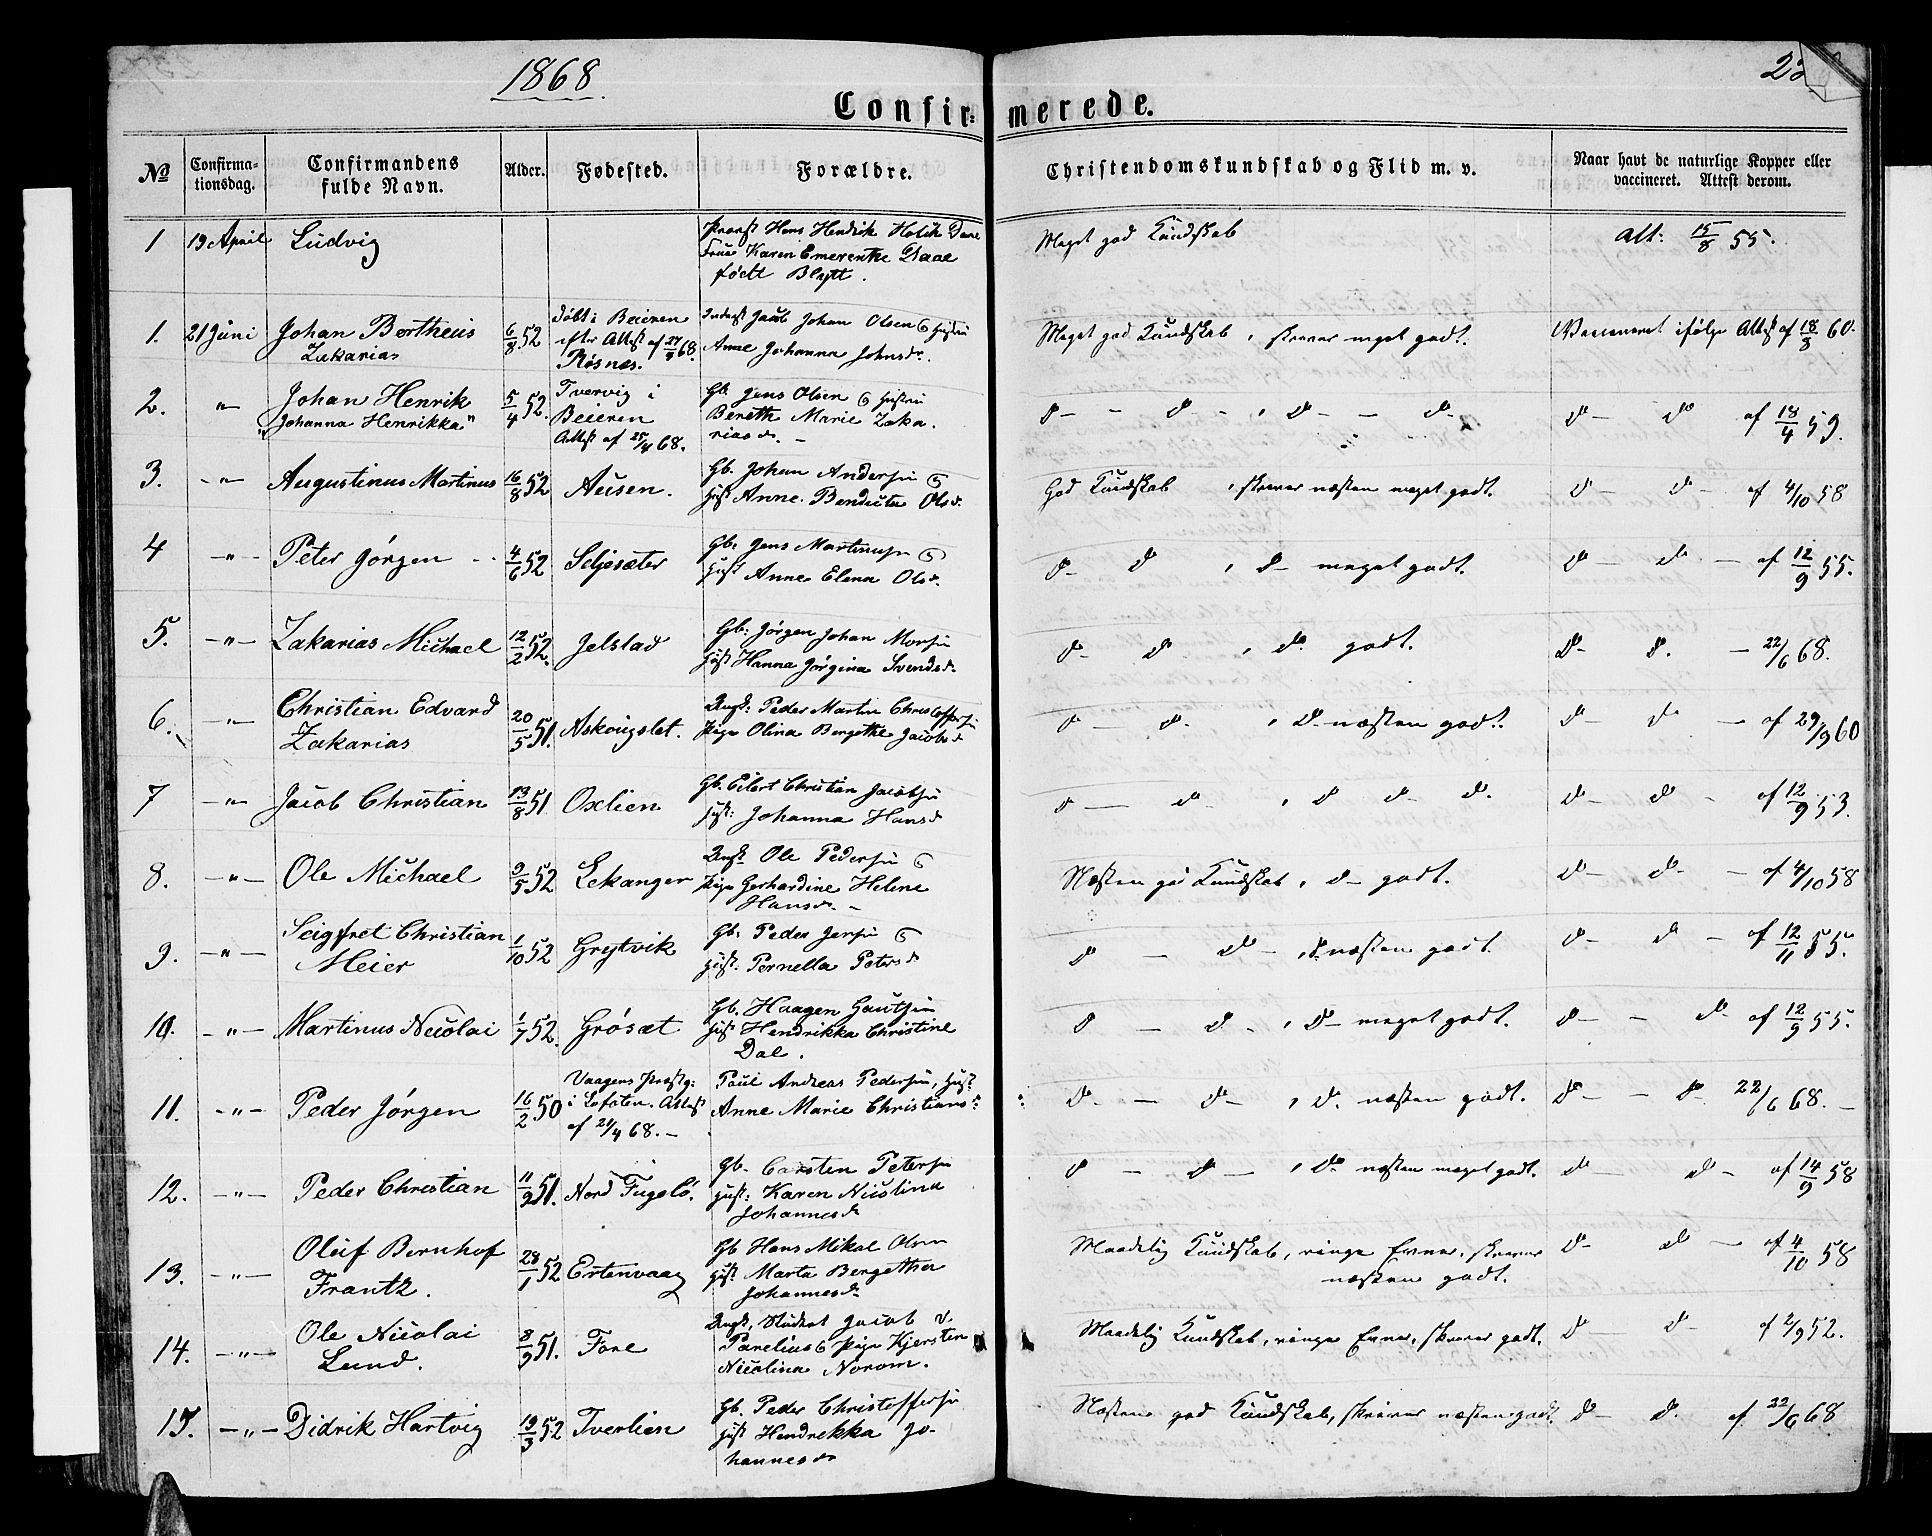 1868
Confirmerede.
No
Confirmationsdag.
Confirmandens fulde Navn.
Alder.
Fødested.
Forældre.
Christendomskundskab og Flid m. v.
Naar havt de naturlige Kopper eller vaccineret. Attest derom.
1 19 April Ludvig
Provst Hans Hendrik
Frue Karen Emerentke Daae
født Blytt.
Meget god Kundskab
Att: 15/8 55.
1. 21 Juni Johan Bertheus
Zakarias
6/8 52
døbt i Beieren
efter Attest af 68.
Røsnæs.
Jacob Johan Olsen
Anne Johanna Johnsd.
Meget god Kundskab, skriver meget godt.
Vaccineret ifølge Attest af 18/8 60.
2. " Johan Henrik
"Johanna Henrikka"
5/4 52.
Tvervig i
Beieren
Attest af 25/4 68.
Gb. Jens Olsen & Hustru
Bereth Marie Zaka
riasd. -
d- - d- , d- - d-
d- d af 18/4 59.
3. " Augustinus Martinus 16/8 52 Ausen.
Gb. Johan Andersen &
Hust Anne Bendicta Olsd.
God Kundskab , skriver næsten meget godt.
d- d- af 4/10 58
4 " Peter Jørgen 4/6 52 Seljesæter
Gb. Jens
Hust Anne Elena Olsd.
d- d , d- meget godt.
d- d- af 12/9 55.
5. " Zakarias Michael 12/2 52. Jelstad
Gb: Jørgen Johan
Hust Hanna Jørgina Svendsd.
d- d , d. godt.
d- d. - 22/6 68.
6. " Christian Edvard
Zakarias
20/5 51. Askougslet.
Ungk: Peder Martin Christoffersen
Pige Olina Bergethe Jacobsd
d- d. , d- næsten godt.
d- d- af 29/9 60
7 " Jacob Christian 13/8 51 Oxlien
Gb. Eilert Christian Jacobsen
Hust: Johanna Hansd
d- d- , d d- d.
d- d- af 12/9 53.
8. " Ole Michael 9/5 52 Lekanger
Ungk Ole Pedersen &
Pige Gerhardine Helene
Hansd. -
Næsten god Kundskab, d- godt.
d- d- af 4/10 58
9. " Seigfret Christian
Meier
1/10 52 Grejtvik
Gb: Peder Jensen &
Hust: Pernella Petersd
d- d- , d. næsten godt.
d- d- af 12/11 55.
10. " Martinus Nicolai 1/7 52. Grøsæt
Gb. Haagen Gautsen
Hust Hendrikka Christine
Dal.
d- d- , d- meget godt.
d- - d- af 12/9 55.
11. " Peder Jørgen 16/2 50
Vaagens Præstg:
i Lofoten. Attest
af 24/4 68. -
Paul Andreas Pedersen, Hust:
Anne Marie Christiansd.
d- - d- , d. næsten godt.
d- - d- 22/6 68. -
12. " Peder Christian 11/9 51. Nord Fugelø.
Gb. Carsten Petersen
Hust: Karen Nicolina
Johannesd
d- d- , d- næsten meget godt.
d- d- af 14/9 58
13. " Oluf Bernhof
Frantz.
28/1 52 Ertenvaag
Gb Hans Mikal Olsen
Hust Marta Bergetha
Johannesd.
Maadelig Kundskab, ringe Evner, skriver
næsten godt.
d- d- af 4/10 58
14. " Ole Nicolai
Lund.
8/9 51. Fore
Ungk. Student Jacob
Parelius & Pige Kjersten
Nicolina Norom.
Maadelig Kundskab, ringe Evner, skriver godt.
d- d- af 2/9 52.
15. " Didrik Hartvig 19/3 52 Tverlien
Gb. Peder Christoffersen
Hust Hendrekka Jo-
hannesd
Næsten god Kundskab, skriver næsten godt.
d- d. af 22/6 68